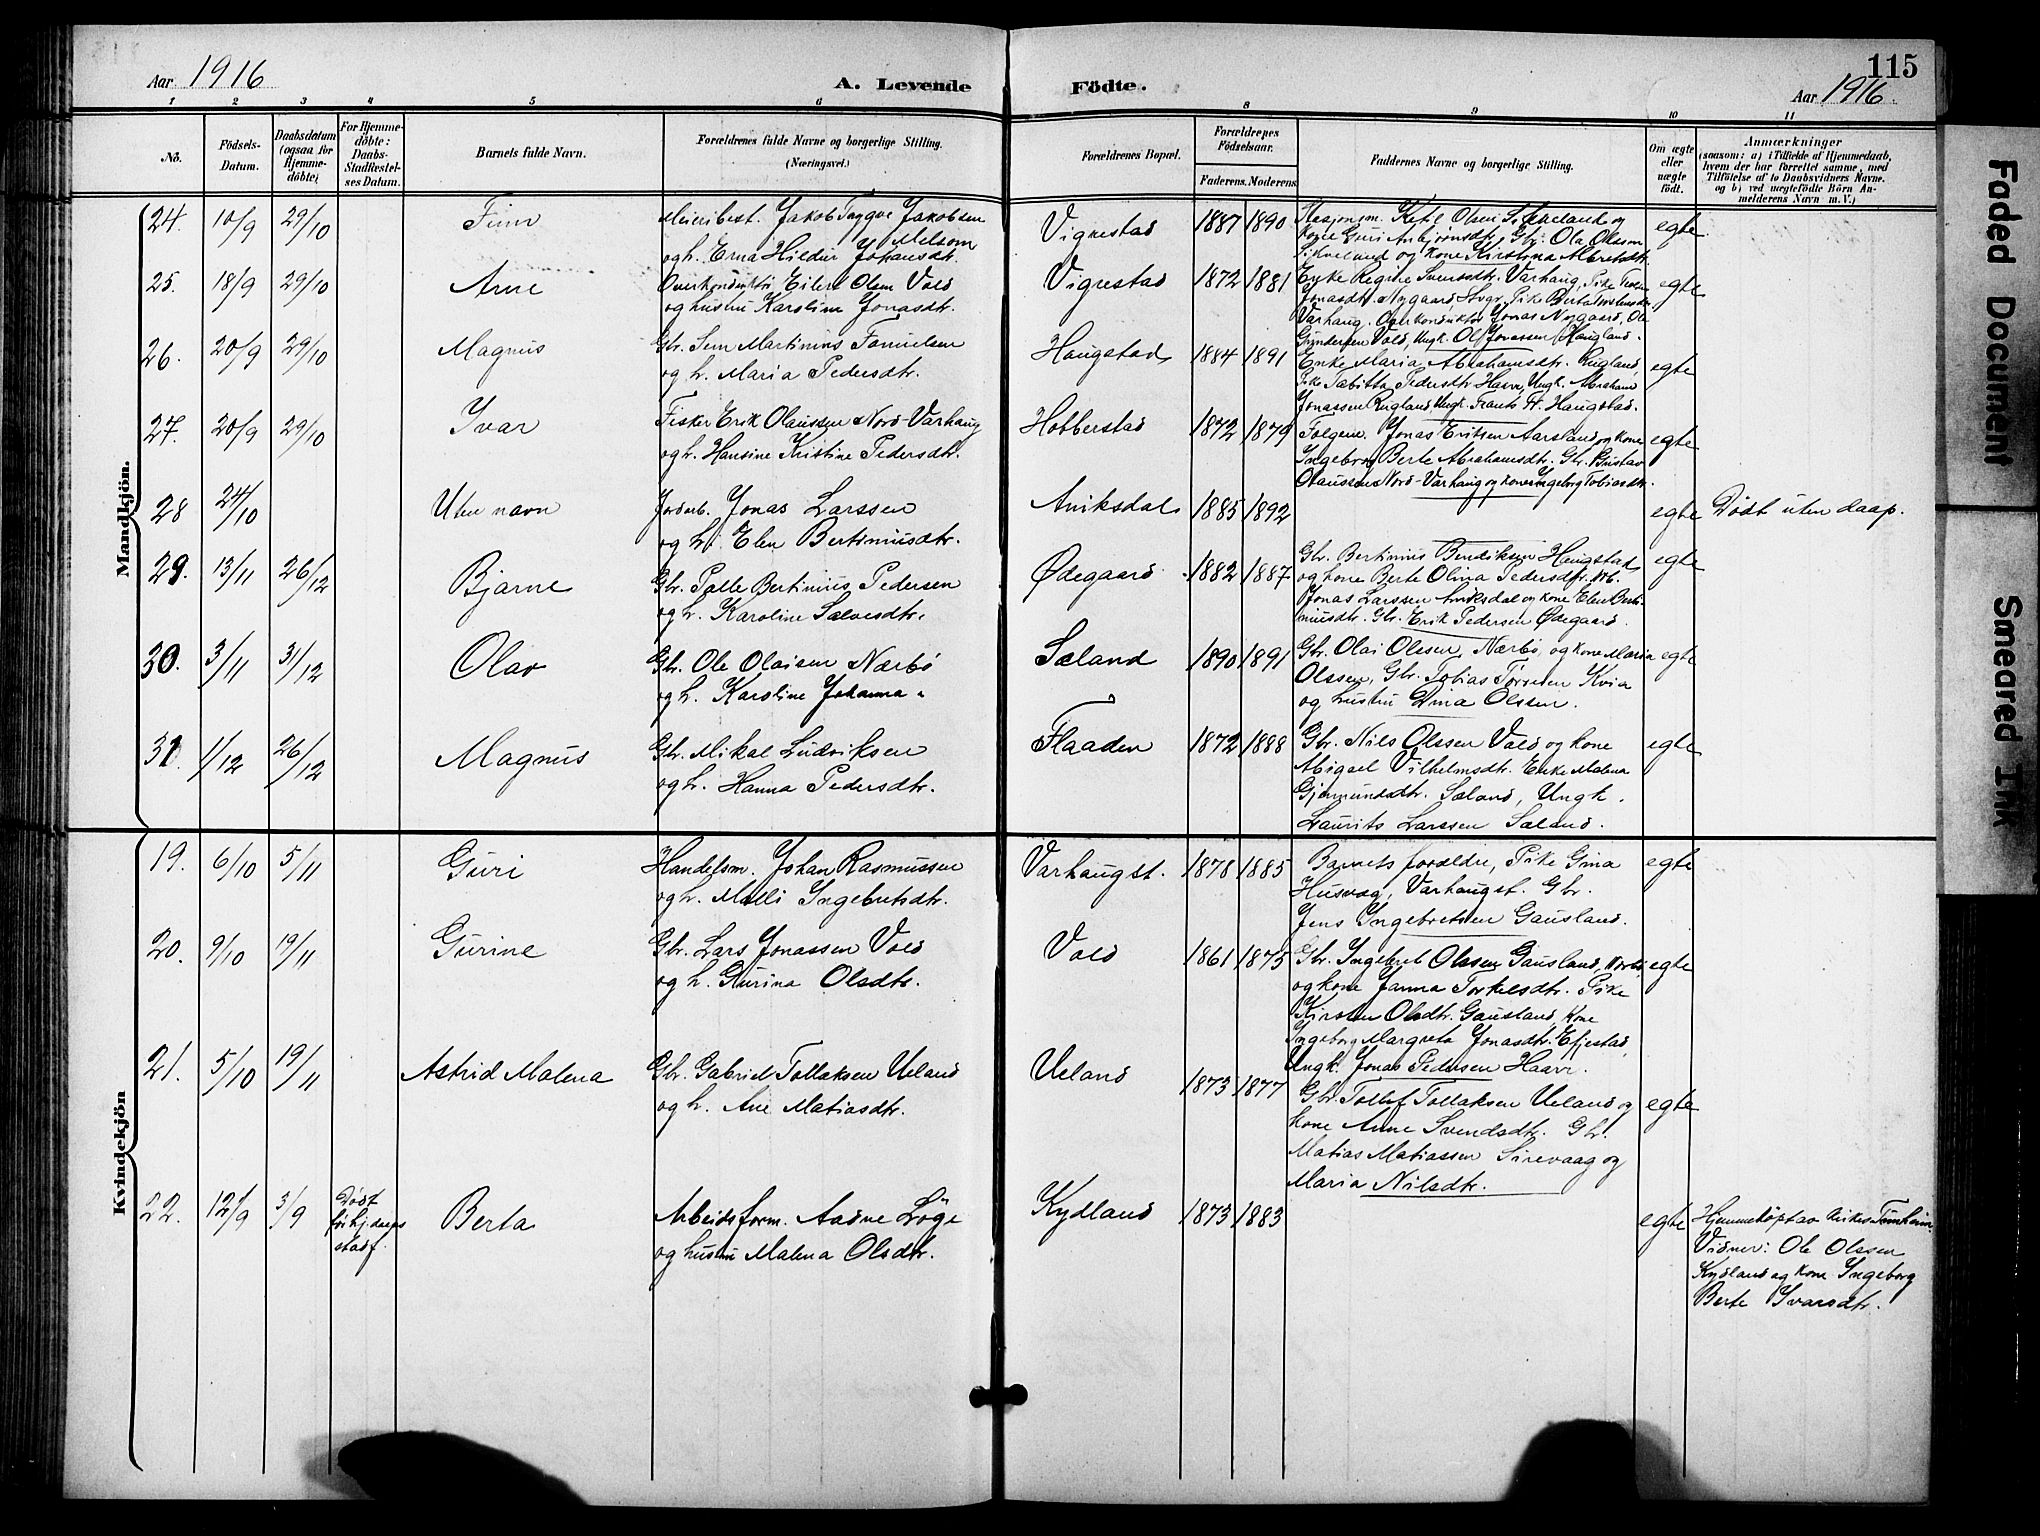 115
Aar 1916
A. Levende Födte.
Aar 1916.
1 2 3 4 5 6 8 9 10 11
No.
Födsels-
Datum.
Daabsdatum
(ogsaa for
Hjemme-
döbte)
For Hjemme-
döbte:
Daabs-
Stadfæstel-
ses Datum.
Barnets fulde Navn.
Forældrenes fulde Navne og borgerlige Stilling.
(Næringsvei.)
Forældrenes Bopæl.
Forældrenes
Födselsaar.
Faderens. Moderens.
Faddernes Navne og borgerlige Stilling.
Om ægte
eller
uægte
födt.
Anmærkninger
(saasom: a) i Tilfælde af Hjemmedaab,
hvem der har forrettet samme, med
Tilföielse af to Daabsvidners Navne.
og b) ved uægtefödte Börn An-
melderens Navn m. V.)
Mandkjön.
24. 10/9 29/10 Finn
Meieribest. Jakob Tryggve Jakobsen
Melsom
og h. Erna Hildur Johansdtr.
Vigrestad 1887 1890
Ketil Olsen og
kone Guri Gbr. Ola Olsson
og kone Kirstina
egte
25. 18/9 29/10 Arne
Overkonduktör Eilert Olsen Vold
og hustru Karoline Jonasdtr.
Vigrestad 1872 1881
Enke Regine Svensdtr. Varhaug, Pike
Jonasdtr. Nygaard, Pike Berta
Varhaug. Overkonduktör Jonas Nygaard, Ole
Gundersen Vold, Ungk. Olaf Jonassen Haugland.
egte
26. 20/9 29/10 Magnus
Gbr. Sem Martinius Tønnesen
og h. Maria Pedersdtr.
Haugstad 1884 1891
Enke Maria Abrahamsdtr. Rugland,
Pike Tabitta Pedersdtr. Haavr, Ungk. Abraham
Jonassen Rugland, Ungk. Haugstad.
egte
27. 20/9 29/10 Ivar
Fisker Erik Olaussen Nord-Varhaug
og h. Hansine Kristine Pedersdtr.
Hobberstad 1872 1879
Jonas Eriksen Aarsland og kone
Ingeborg Berte Abrahamsdtr. Gbr. Gustav
Olaussen Nord-Varhaug og kone Ingeborg Tobiasdtr.
egte
28 24/10 Uten navn
Jordarb. Jonas Larssen
og h. Elen Bertinusdtr.
Aniksdal 1885 1892 egte Dödt uten daap.
29. 13/11 26/12 Bjarne
Gbr. Palle Bertinius Pedersen
og h. Karoline Salvesdtr.
Ödegaard. 1882 1887
Gbr. Bertinius Bendiksen Haugstad
og kone Berte Olina Pedersdtr.
Jonas Larssen Aniksdal og kone Elen Berti-
niusdtr. Gbr. Erik Pedersen Ödegaard.
egte
30. 3/11 31/12 Olav
Gbr. Ole Olaisen Nærbö
og h. Karoline Johanna
Sæland 1890 1891
Gbr. Olai Olesen, Nærbö, og kone Maria
Olssen, Gbr. Tobias Tørresen Kvia
og hustru Dina Olssen.
egte
31. 1/12 26/12 Magnus
Gbr. Mikal Ludviksen
og h. Hanna Pedersdtr.
Flaaden 1872 1888
Gbr. Nils Olssen Vold og kone
Abigael Vilhelmsdtr. Enke Malena
Gjermundsdtr. Sæland, Ungk.
Laurits Larssen Sæland.
egte
Kvindekjön
19. 6/10 5/11 Guri
Handelsm. Johan Rasmussen
og h. Malli Ingebretsdtr.
Varhaugst. 1878 1885
Barnets forældre, Pike Gina
Husvæg, Varhaugst. Gbr.
Jens Ingebretsen Gausland.
egte
20. 9/10 19/11 Gurine
Gbr. Lars Jonassen Vold
og h. Gurina Olsdtr.
Vold 1861 1875
Gbr. Ingebret Olssen Gausland, Nærbö
og kone Janna Torkelsdtr. Pike
Kirsten Olsdtr. Gausland, Kone
Ingeborg Margreta Jonasdtr. Efjestad,
Ungk. Jonas Pedersen Haavr.
egte
21. 5/10 19/11 Astrid Malena
Gbr. Gabriel Tollaksen Ueland
og h. Ane Matiasdtr.
Ueland 1873 1877
Gbr. Tollef Tollaksen Ueland og
kone Anne Svendsdtr. Gbr.
Matias Matiassen Sirevaag og
Maria Nilsdtr.
egte
22. 12/9 3/9
Dödt
för hj.daaps
stadf.
Berta
Arbeidsform. Aadne Löge
og hustru Malena Olsdtr.
Kydland 1873 1883 egte
Hjemmedöpt av
Vidner: Ole Olssen
Kydland og kone Ingeborg
Berte Ivarsdtr.
Faded Document
Smeared Ink